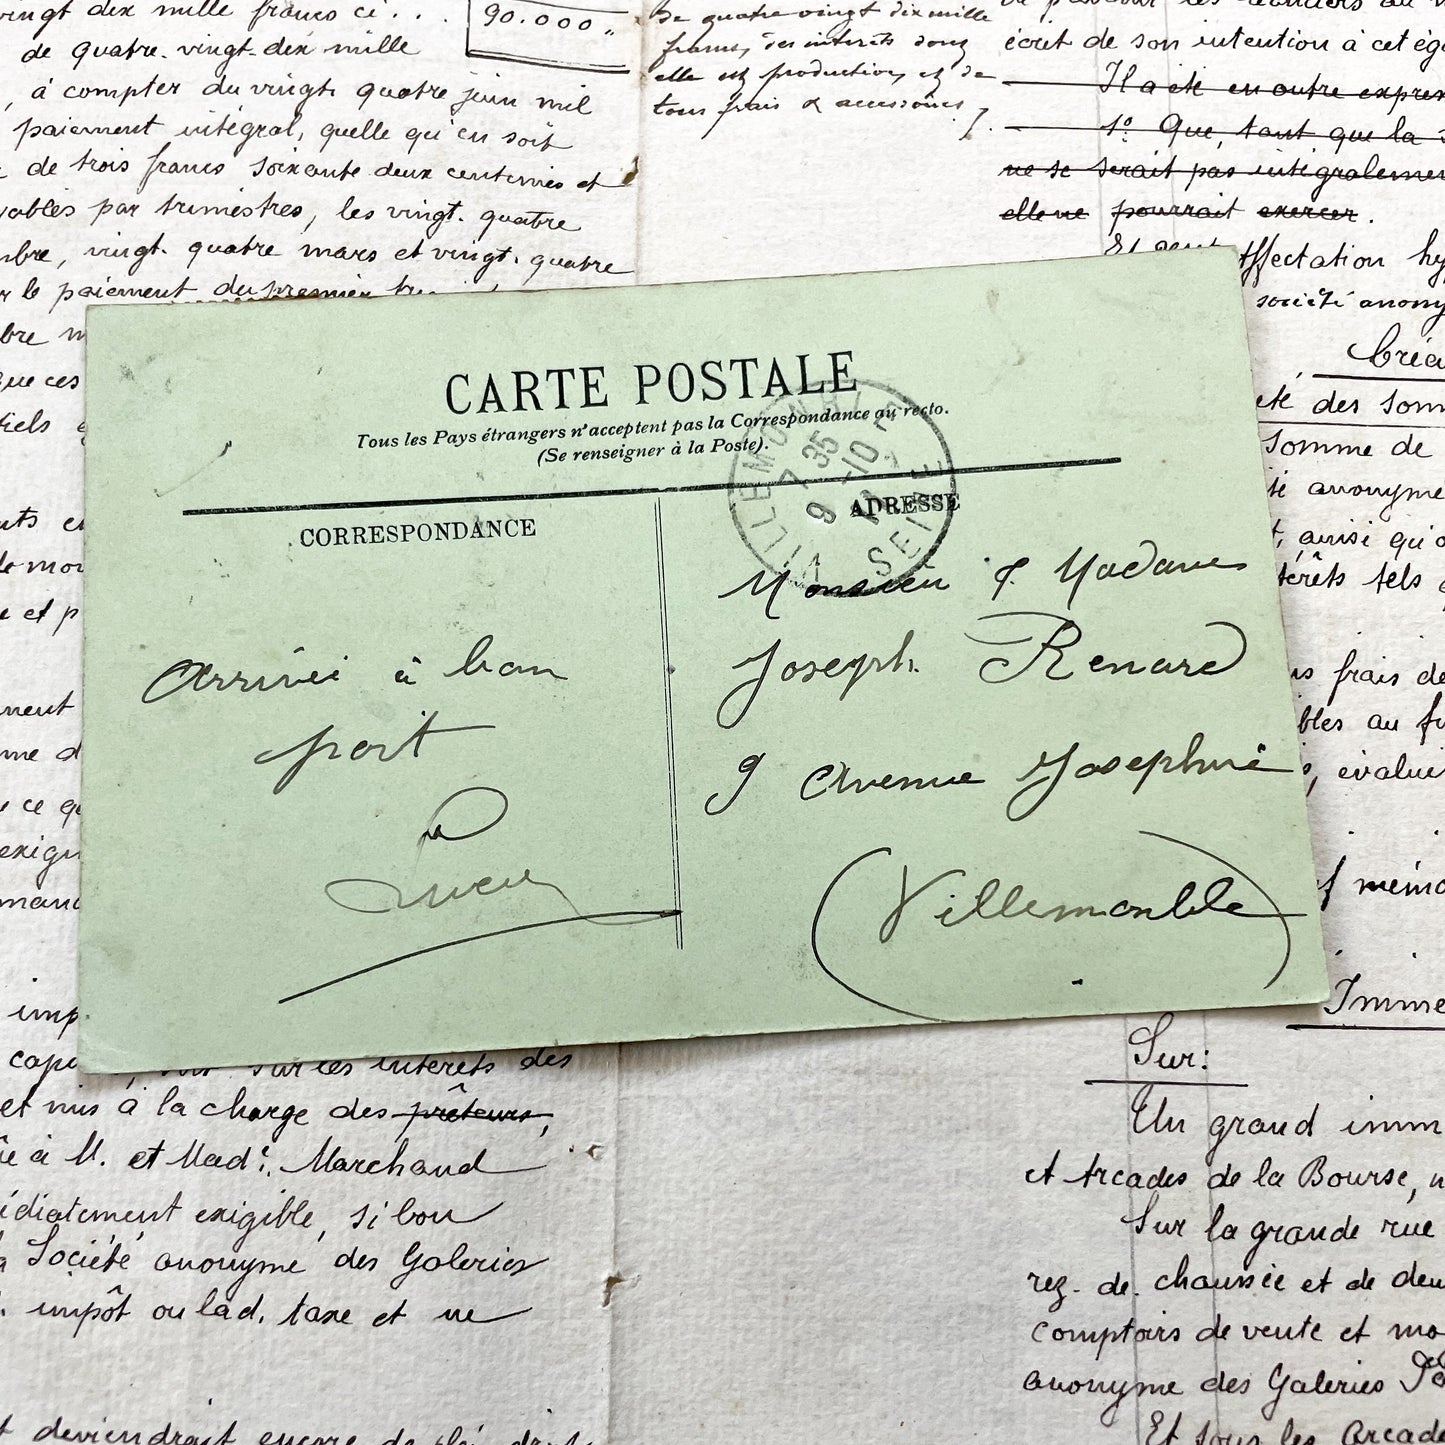 vingt dix mille francs ci...
90.000 "
de quatre. vingt-dix mille
, à compter du vingt. quatre juin mil
paiement intégral, quelle qu'en soit
de trois francs soixante deux centimes et
yables par trimestres, les vingt. quatre
mbre, vingt. quatre mars et vingt. quatre
r le paiement du premier
bre m
que ces
tiels
de quatre vingt dix mille
francs, des intérêts dont
elle est production, et de
tous frais & accessoires
écrit de son intention à cet éga
Il a été en outre expres
1° Que, tant que la
ne se serait pas intégralemen
elle ne pourrait exercer.
ffectation hy
société anony
Créa
été des somm
Somme de
té anonyme
, ainsi qu'o
térêts tels
CARTE POSTALE
Tous les Pays étrangers n'acceptent pas la Correspondance au recto.
(Se renseigner à la Poste).
CORRESPONDANCE
ADRESSE
VILLEMOMBLE
7 35
9 -10
SEINE
Arrivée à bon
port
Lucy
Monsieur & Madame
Joseph Renard
9 Avenue Joséphine
(Villemomble)
nts e
de mor
e et p
ment
me d
ce q
exig
mand
s frais de
bles au f
, évalué
imp
cap
sur les intérêts des
et mis à la charge des prêteurs,
à M. et Made. Marchand
édiatement exigible, si bon
a Société anonyme des Galeries
impôt ou lad. taxe et ne
t deviendrait encore de plein droit
Imme
Sur:
Un grand imm
et Arcades de la Bourse, n
Sur la grande rue
rez. de. chaussée et de deu
comptoirs de vente et mo
anonyme des Galeries
Et sous les Arcade